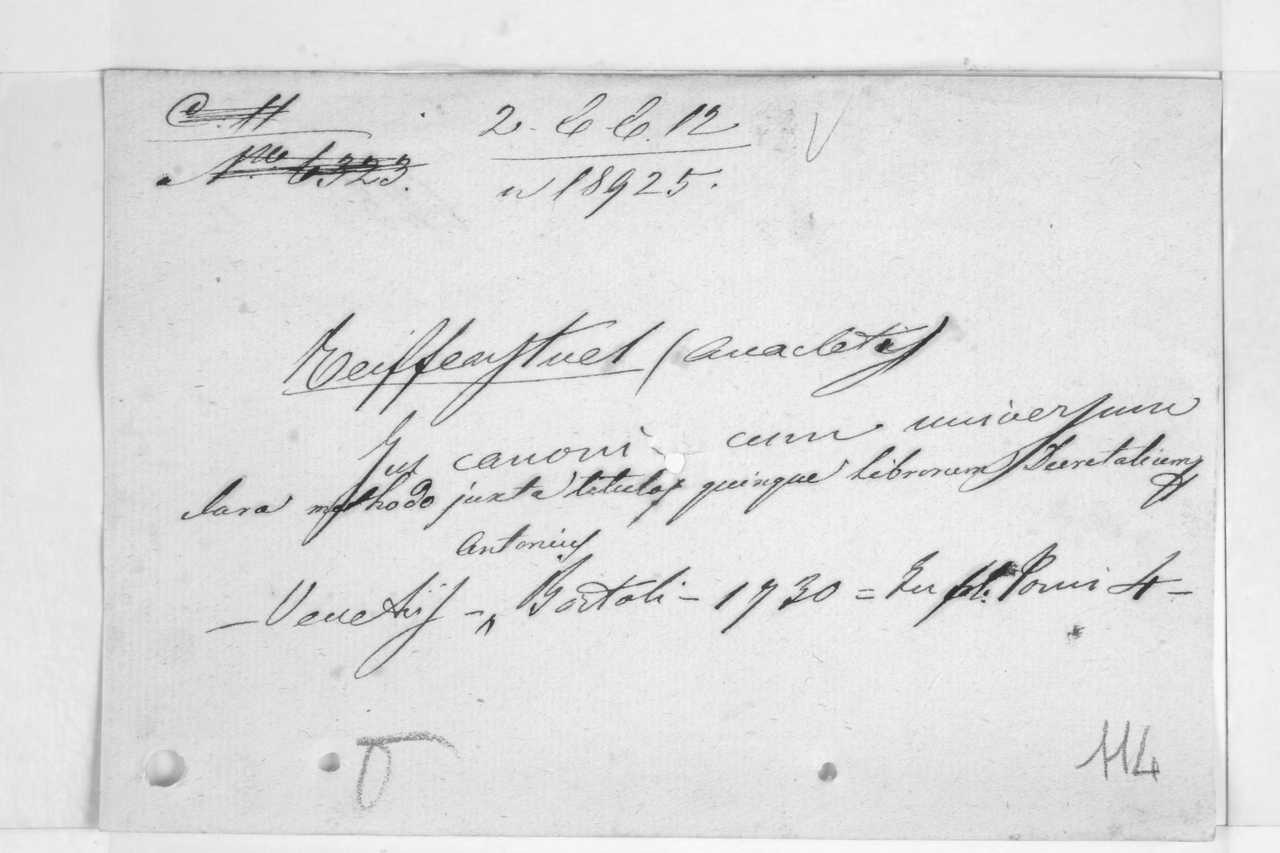 C. H
2. C C. 12
N.ro 6323.
n 18925.
Reiffenstuel (Anacletus)
Jus canoni cum universum
clara methodo juxta titulos quinque librorum Decretalium
Antonius
— Venetiis — Bortoli — 1730 = In fol. Tomi 4 —
114